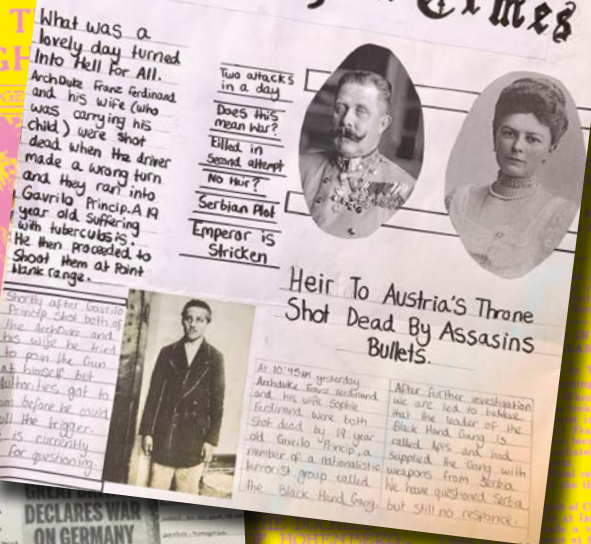 Times
What was a
lovely day turned
Into Hell For All.
ArchDuke Franz Ferdinand
and his wife (who
was carrying his
child) were shot
dead when the driver
made a wrong turn
and they ran into
Gavrilo Princip. A 19
year old suffering
with tuberculosis.
He then proceeded to
Shoot them at Point
blank range.
Two attacks
in a day
Does this
mean War?
Killed in
Second attempt
No Hair?
Serbian Plot
Emperor is
Stricken
Heir To Austria's Throne
Shot Dead By Assasins
Bullets.
Shortly after Gavrilo
Princip shot both of
the ArchDuke and
his wife he tried
to poin the Gun
at himself but
Authorities got to
before he could
the trigger.
is currently
For questioning.
At 10:45am yesterday
ArchDuke Franz Ferdinand
and his wife Sophie
Ferdinand were both
Shot dead by 19 year
old Gavrilo Princip, a
member of a nationalistic
terrorist group called
the Black Hand Gang.
After further investigation
we are led to believe
that the leader of the
Black Hand Gang is
called Apis and had
Supplied the Gang with
weapons from Serbia.
We have questioned Serbia
but still no responce.
DECLARES WAR
ON GERMANY
HOHENBERG